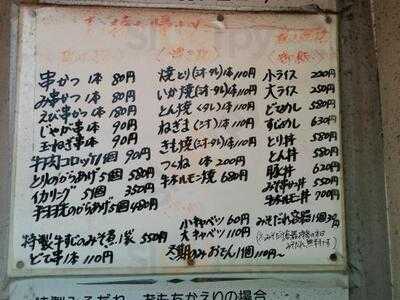 串かつ 1本 80円
み串かつ 1本 80円
えび串かつ 1本 180円
じゃが串 1本 90円
玉ねぎ串 1本 90円
牛肉コロッケ 1個 90円
とりのからあげ 5個 580円
イカリング 5個 350円
からあげ 5個 480円
特製牛すじのみそ煮 1袋 550円
どて串 1本 110円
焼とり(シオ・タレ) 1本 110円
いか焼(シオ・タレ) 1本 110円
とん焼(タレ) 1本 110円
ねぎま(シオ) 1本 110円
きも焼(シオ・タレ) 1本 110円
つくね 1本 200円
牛ホルモン焼 680円
小キャベツ 60円
大キャベツ 110円
冬期のみ おでん 1個 110円〜
小ライス 200円
大ライス 250円
どてめし 580円
すじめし 630円
とり丼 580円
とん丼 580円
豚丼 620円
みそ串かつ丼 550円
牛ホルモン丼 700円
みそだれ容器 1個 30円
特製みそだれ おもちかえりの場合